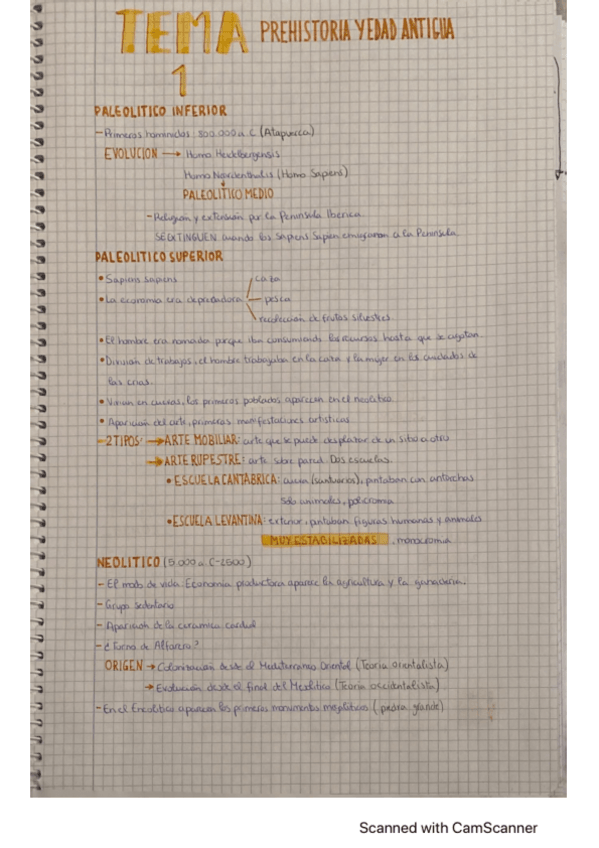 TEMA 1 PREHISTORIA Y EDAD ANTIGUA
PALEOLITICO INFERIOR
- Primeros hominidos 800.000 a.C (Atapuerca)
EVOLUCION → Homo Heidelbergensis
Homo Neardenthalis (Homo Sapiens)
PALEOLITICO MEDIO
- Religion y extension por la Peninsula Iberica
SE EXTINGUEN cuando los Sapiens Sapien emigraron a la Peninsula
PALEOLITICO SUPERIOR
• Sapiens sapiens
caza
• La economia era depredadora — pesca
recoleccion de frutos silvestres
• El hombre era nomada porque iban consumiendo los recursos hasta que se agotan
• Division de trabajos, el hombre trabajaba en la caza y la mujer en los cuidados de
las crias.
• Vivian en cuevas, los primeros poblados aparecen en el neolitico
• Aparicion del arte, primeras manifestaciones artisticas
- 2 TIPOS: → ARTE MOBILIAR: arte que se puede desplazar de un sitio a otro
→ ARTE RUPESTRE: arte sobre pared. Dos escuelas
• ESCUELA CANTABRICA: (santuarios), pintaban con antorchas
solo animales, policromia
• ESCUELA LEVANTINA: exterior, pintaban figuras humanas y animales
MUY ESTABILIZADAS, monocromia
NEOLITICO (5.000 a.C-2500)
- El modo de vida. Economia productora aparece la agricultura y la ganaderia.
- Grupo sedentario
- Aparicion de la ceramica cardial
- ¿Torno de Alfarero?
ORIGEN → Colonizacion desde el Mediterraneo Oriental (Teoria orientalista)
→ Evolucion desde el final del Mesolitico (Teoria occidentalista)
- En el Eneolitico aparecen los primeros monumentos megaliticos (piedra grande)
Scanned with CamScanner